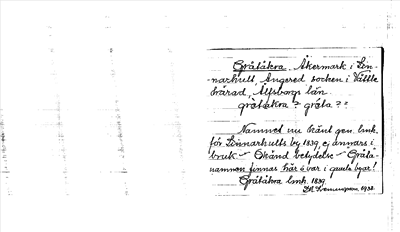 Gråtåkra. Åkermark i Lin-
narhult, Angered socken i Vättle
härad, Älfsborgs län.
gråtåkra? gråta? =
Namnet nu känt gen. lmk.
för Linnarhults by 1839, ej annars i
bruk – Okänd betydelse – Gråta-
namnen finnas här o var i gamla byar!
Gråtåkra lmk. 1839.
1938.